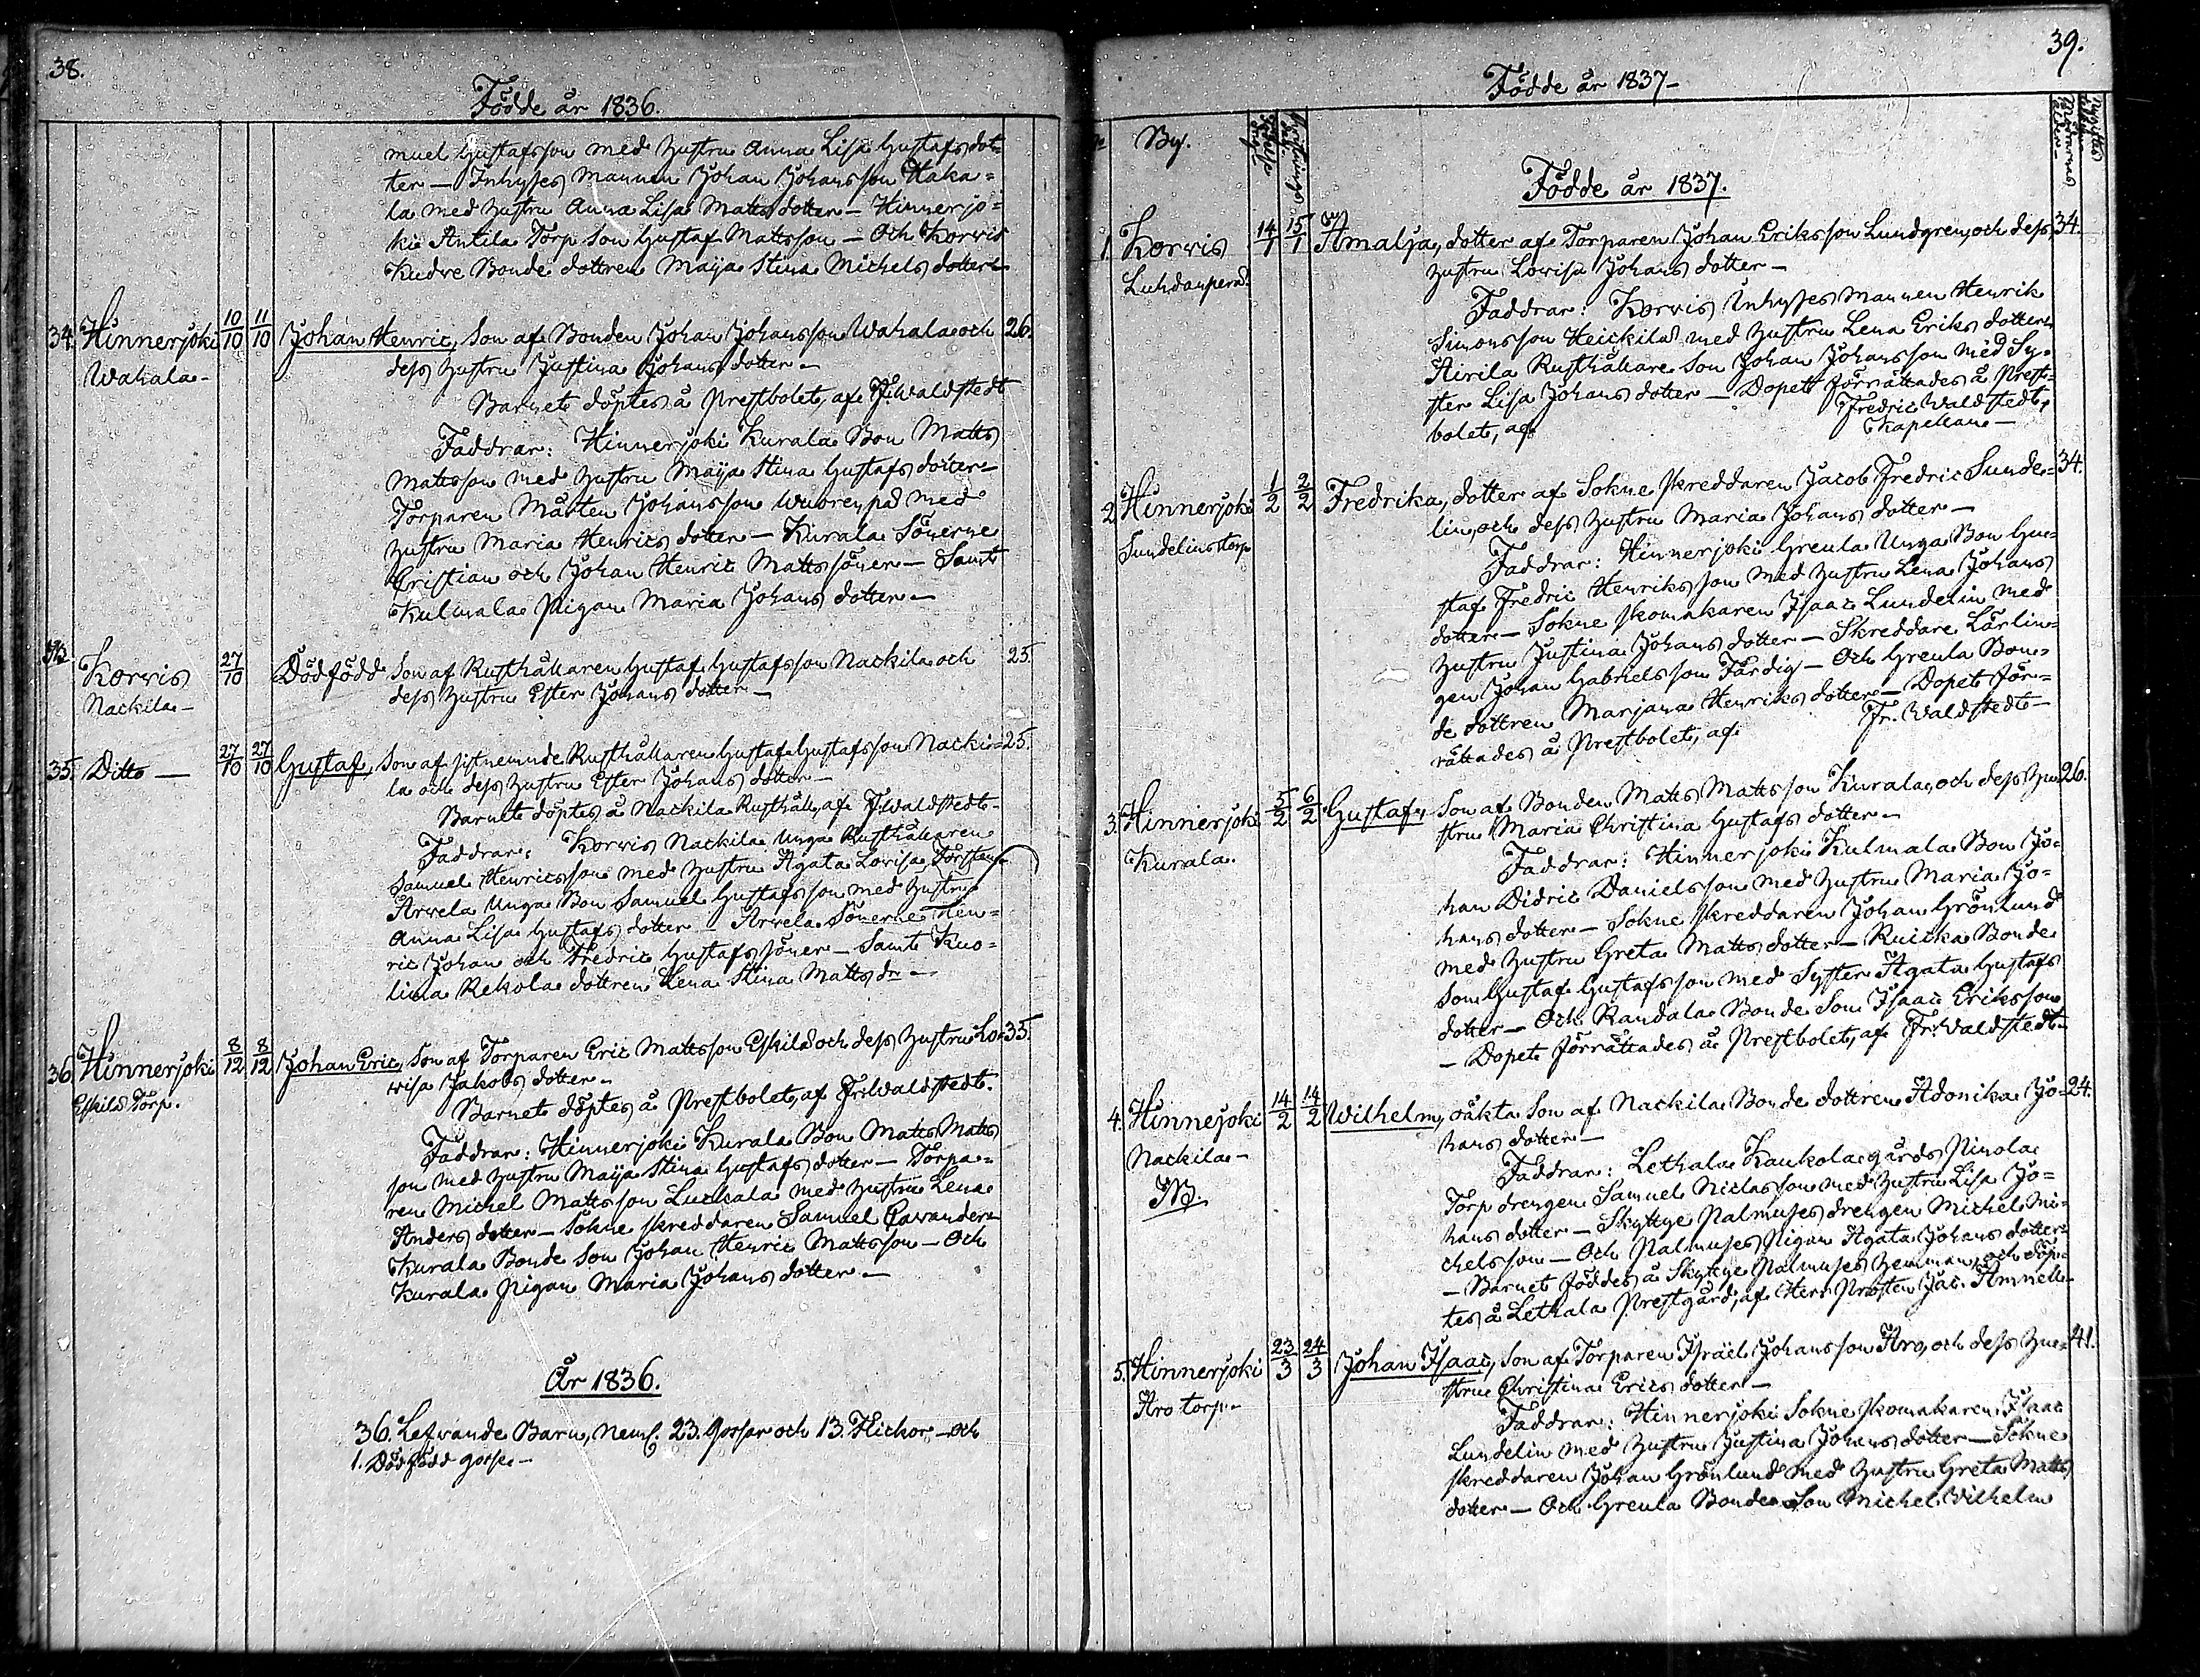 38.
Födde år 1836.
muel Gustafsson med hustru Anna Lisa Gustafs dot=
ter — Inhyses Mannen Johan Johansson Haka=
la med hustru Anna Lisa Matts dotter — Hinnerjo=
ki Antila Torp Son Gustaf Mattsson — Och Korvis
Kudre Bonde dottren Maija Stina Michels dotter
34. Hinnerjoki 10/10 11/10 Johan Henric, Son af Bonden Johan Johansson Wahala och 26.
Wahala — dess hustru Justina Johans dotter —
Barnet döptes å Prestbolet, af F. Waldstedt
Faddrar: Hinnerjoki Kurala Bon Matts
Mattsson med hustru Maija Stina Gustafs dotter —
Torparen Mårten Johansson med
hustru Maria Henrics dotter — Kurala Sönerne
Cristian och Johan Henric Matts söner — Samt
Kulmala Pigan Maria Johans dotter —
NB. Korvis 27/10 Dödfödd Son af Rusthållaren Gustaf Gustafsson Nackila och 25.
Nackila — dess hustru Ester Johans dotter —
35. Ditto — 27/10 27/10 Gustaf, Son af sistnemnde Rusthållaren Gustaf Gustafsson Nacki= 25.
la och dess hustru Ester Johans dotter —
Barnet döptes å Nackila Rusthåll, af F. Waldstedt —
Faddrar: Korvis Nackila Unga Rusthållaren
Samuel Henricsson med hustru Agata Lovisa
Arvela Unga Bon Samuel Gustafsson med hustru
Anna Lisa Gustafs dotter — Arvela Sönerne Hen=
ric Johan och Fredric Gustafs söner — Samt Kuo=
lima Rekola dottren Lena Stina Matts dr —
36. Hinnerjoki 8/12 8/12 Johan Eric, Son af Torparen Eric Mattsson Eskild och dess hustru Lo= 35.
Eskild Torp. visa Jakobs dotter —
Barnet döptes å Prestbolet, af Fr. Waldstedt.
Faddrar: Hinnerjoki Kurala Bon Matts Matts
son med hustru Maija Stina Gustafs dotter — Torpa=
ren Michel Mattsson Luckala med hustru Lena
Anders dotter — Sokne skreddaren Samuel Cavander
Kurala Bonde Son Johan Henric Mattsson — Och
Kurala Pigan Maria Johans dotter —
År 1836.
36. Lefvande Barn, neml. 23. Gossar och 13. Flickor — och
1. Dödfödd gosse —
39.
Födde år 1837 —
By.
Födde år 1837.
1. Korvis 14/1 15/1 Amalja, dotter af Torparen Johan Eriksson Lundgren, och dess 34.
Luhdanperä hustru Lovisa Johans dotter —
Faddrar: Korvis Inhyses mannen Henrik
Simonsson Heickilä med hustru Lena Eriks dotter
Airila Rusthållare Son Johan Johansson med Sy=
ster Lisa Johans dotter — Dopet förrättades å Prest=
bolet, af Fredric Waldstedt,
Kapellan —
2. Hinnerjoki 1/2 2/2 Fredrika, dotter af Sokne skreddaren Jacob Fredric Sunde= 34.
Sundelins torp lin, och dess hustru Maria Johans dotter —
Faddrar: Hinnerjoki Greula Unga Bon Gu=
staf Fredric Henriksson med hustru Lena Johans
dotter — Sokne skomakaren Isaac Lundelin med
hustru Justina Johans dotter — Skreddare Lärlin=
gen Johan Gabrielsson Färdig — Och Greula Bon=
de dottren Marjana Henriks dotter — Dopet för=
rättades å Prestbolet, af Fr. Waldstedt —
3. Hinnerjoki 5/2 6/2 Gustaf, Son af Bonden Matts Mattsson Kurala, och dess hu= 26.
Kurala. stru Maria Christina Gustafs dotter —
Faddrar: Hinnerjoki Kulmala Bon Jo=
han Didric Danielsson med hustru Maria Jo=
hans dotter — Sokne skreddaren Johan Grönlund
med hustru Greta Matts dotter — Ruicka Bonde
Son Gustaf Gustafsson med Syster Agata Gustafs
dotter — Och Randala Bonde Son Isaac Eriksson
— Dopet förrättades å Prestbolet, af Fr. Waldstedt —
4. Hinnejoki 14/2 14/2 Wilhelm, oäkta Son af Nackila Bonde dottren Adonika Jo= 24.
Nackila — hans dotter —
NB. Faddrar: Lethala Kaukola gårds Pinola
Torp drengen Samuel Niclasson med hustru Lisa Jo=
hans dotter — Skyttye Palmuses drengen Michel Mi=
chelsson — Och Palmuses Pigan Agata Johans dotter
— Barnet föddes å Skyttye Palmuses hemman, och döp=
tes å Lethala Prestgård, af Herr Prosten Jac. Amnell —
5. Hinnerjoki 23/3 24/3 Johan Isaac, Son af Torparen Israel Johansson Aro, och dess hu= 41.
Aro torp — stru Christina Erics dotter —
Faddrar: Hinnerjoki Sokne skomakaren Isaac
Lundelin med hustru Justina Johans dotter — Sokne
skreddaren Johan Grönlund med hustru Greta Matts
dotter — Och Greula Bonde Son Michel Wilhelm